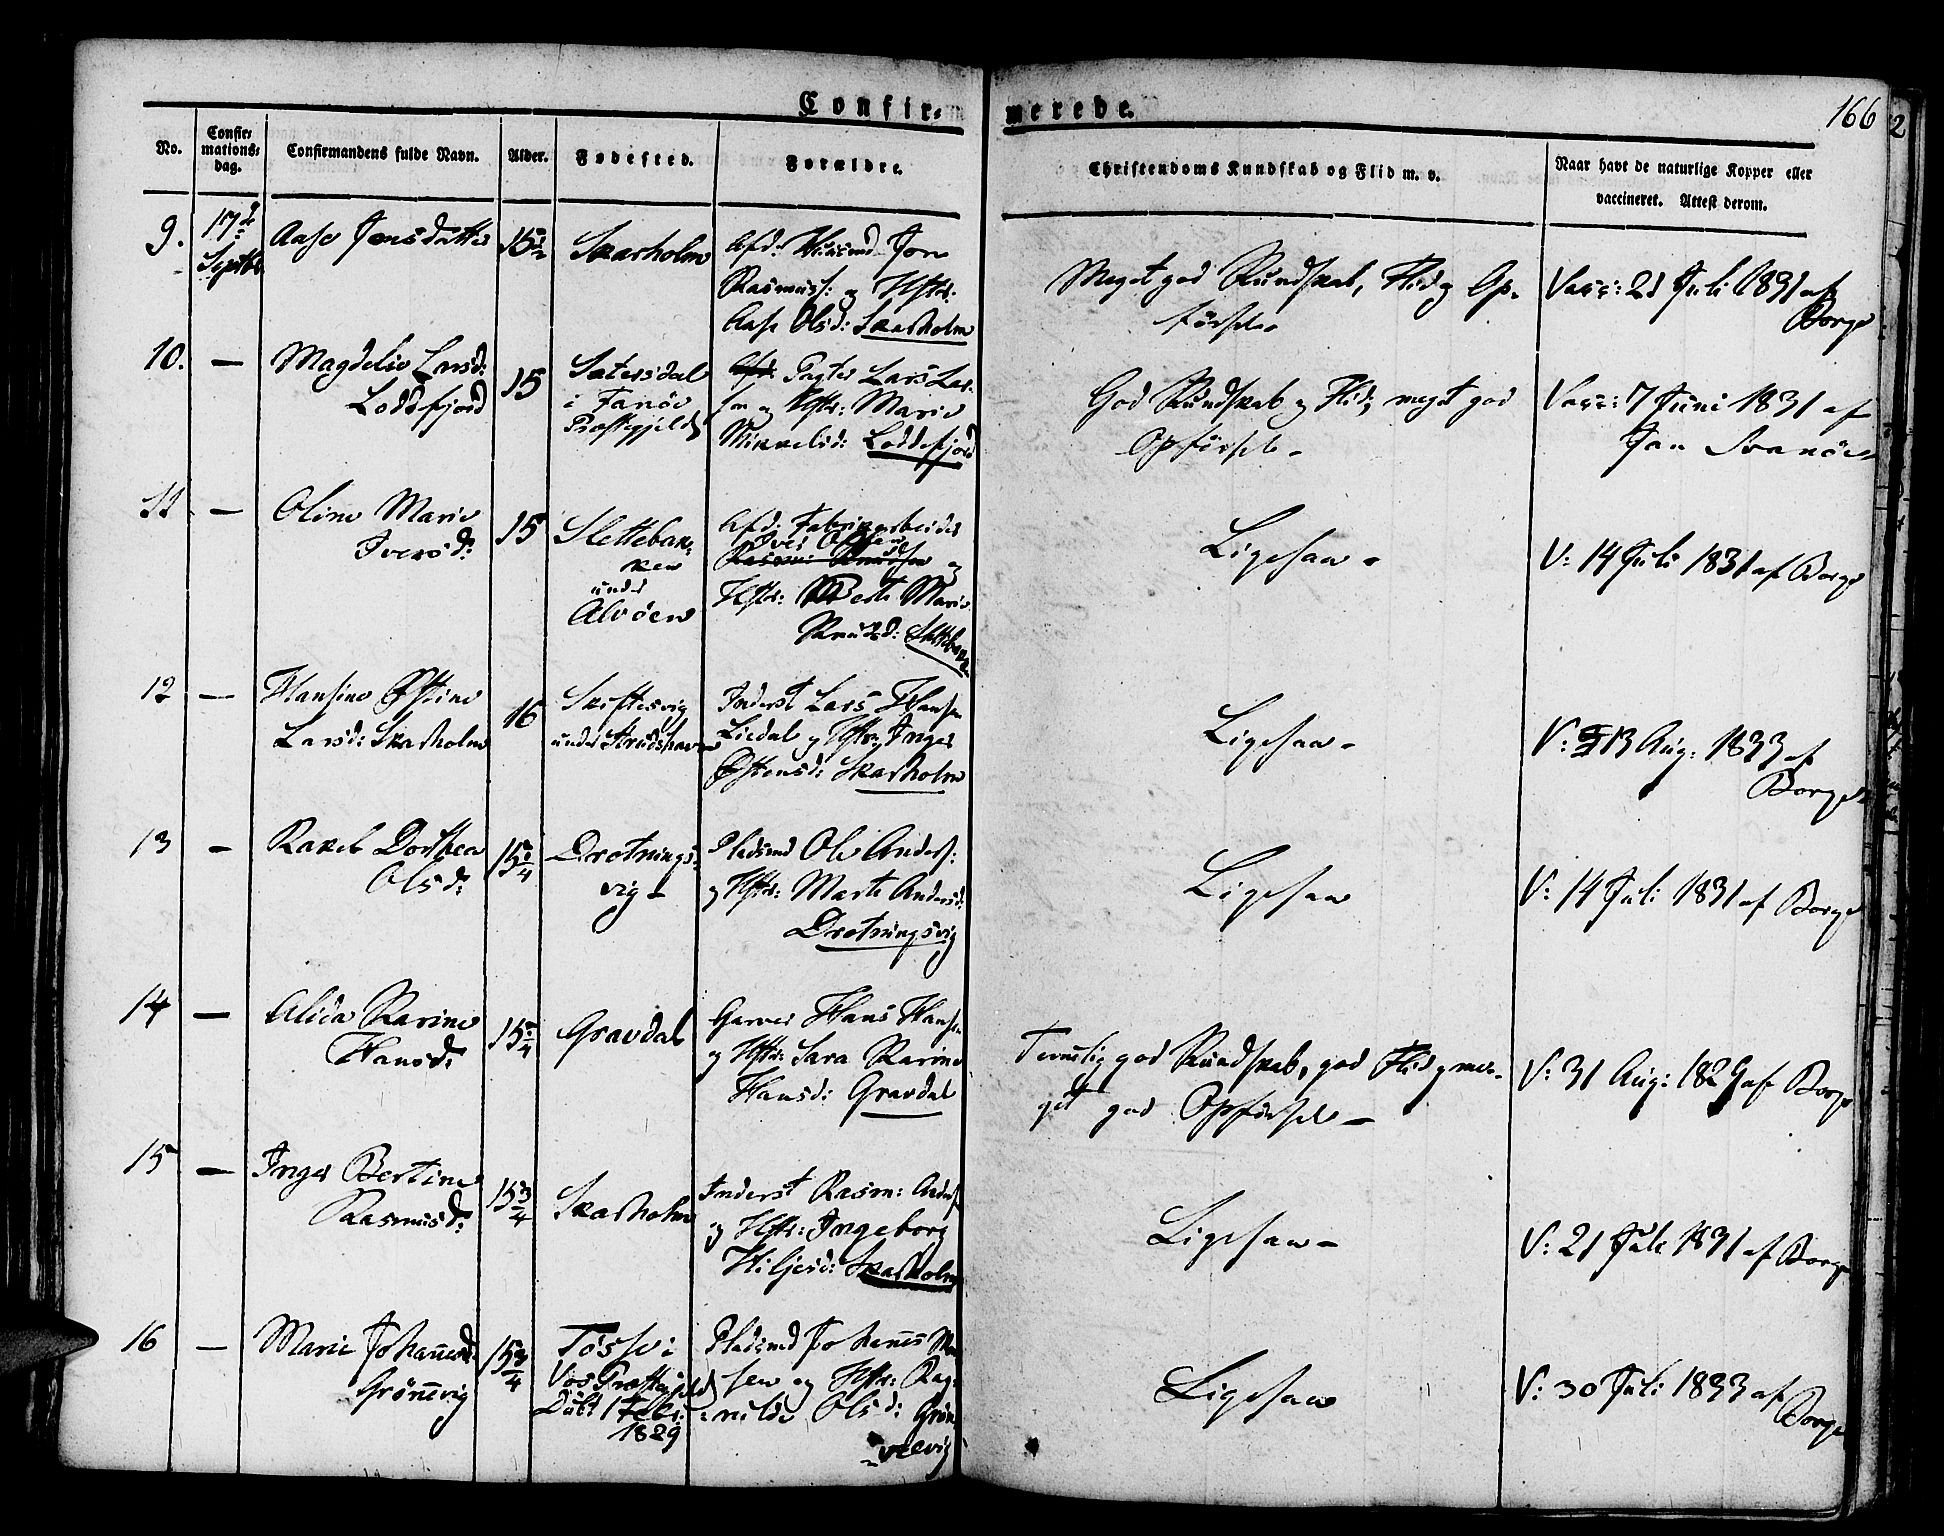 Confirmerede.
166
2
No.
Confir-
mations-
dag.
Confirmandens fulde Navn.
Alder.
Fødested.
Forældre.
Christendoms Kundskab og Flid m. v.
Naar havt de naturlige Kopper eller
vaccineret. Attest derom.
9.
17de
Septbr
Aase Jonsdatter
15½
Skarholm
Afd: Huusmd Jon
Rasmuss: og Hstr:
Aase Olsd: Skarholm
Meget god Kundskab, Flid og Op-
førsel.
Vacc: 21 Juli 1831 af
Borge
10.
—
Magdeli Larsd:
Loddefjord
15
Sætersdal
i Fanøe
Præstegjeld
Afd: Pagter Lars Lar-
sen og Hstr: Marie
Mikkelsd: Loddefjord
God Kundskab og Flid, meget god
Opførsel.
Vacc: 7 Juni 1831 af
Jan Svanøe
11
—
Oline Marie
Iversd:
15
Slettebak-
ken
under
Alvøen
Afd: Fabrikarbeider
Iver Olsen
Rasmus Knudsen og
Hstr: Berte Marie
Knudsd: Slettebakk
Ligesaa
V: 14 Juli 1831 af Borge
12
—
Hansine Østine
Larsd: Skarholm
16
Skiftesvig
under Strudshavn
Inderst Lars Hansen
Liedal og Hstr: Inger
Østensd: Skarholm
Ligesaa
V: 13 Aug: 1833 af
Borge
13
—
Rakel Dorthea
Olsd:
15¾
Drotnings-
vig
Pladsmd Ole Anders:
og Hstr: Marte Andersd:
Drotningsvig
Ligesaa
V: 14 Juli 1831 af Borge
14
—
Alida Karine
Hansd:
15¾
Gravdal
Garver Hans Hansen
og Hstr: Sara Karine
Hansd: Gravdal
Temmelig god Kundskab, god Flid og me-
get god Opførsel
V: 31 Aug: 1829 af Borge
15
—
Inger Bertine
Rasmusd:
15¾
Skarholm
Inderst Rasm: Anders
og Hstr: Ingeborg
Hiljesd: Skarholm
Ligesaa
V: 21 Juli 1831 af Borge
16
—
Marie Johannesd:
Grønnevig
15¾
Tøsse i
Vos Præstegjeld
Døbt 1 Febr:
1829
Pladsmd Johannes
sen og Hstr: Rag-
nilde Olsd: Grøn-
nevig
Ligesaa
V: 30 Juli 1833 af
Borge